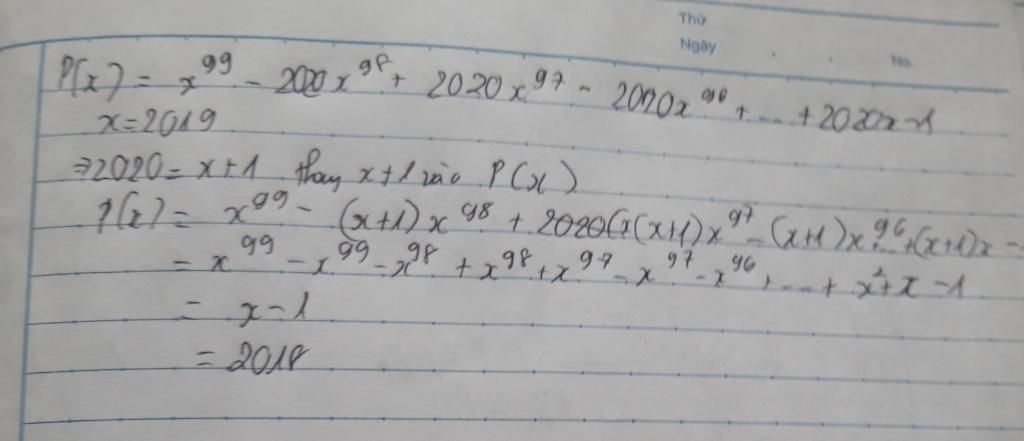 Thứ
Ngày
No.
P(x) = x^99 - 2020x^98 + 2020x^97 - 2020x^96 + ... + 2020x - 1
x = 2019
⇒ 2020 = x + 1 thay x + 1 vào P(x)
P(x) = x^99 - (x+1)x^98 + (x+1)x^97 - (x+1)x^96 + (x+1)x -
= x^99 - x^99 - x^98 + x^98 + x^97 - x^97 - x^96 + ... + x^2 + x - 1
= x - 1
= 2018